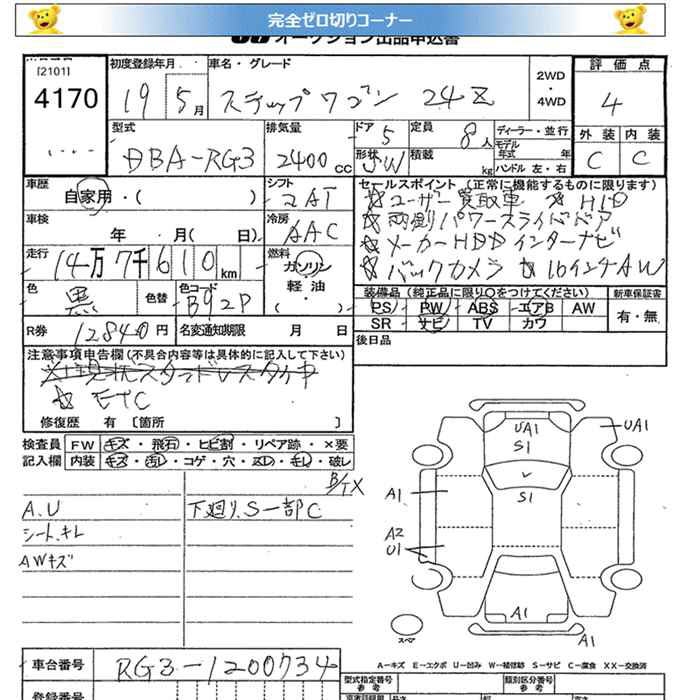 完全ゼロ切りコーナー
オークション出品申込書
[2101]
4170
初度登録年月 19 5月
車名・グレード ステップワゴン 24Z
2WD・4WD
評価点 4
外装 C 内装 C
型式 DBA-RG3
排気量 2400cc
ドア 5
形状 SW
定員 8人
積載 kg
ディーラー・並行
モデル年式 年
ハンドル 左・右
車歴 自家用・( )
シフト コAT
セールスポイント (正常に機能するものに限ります)
☆ユーザー買取車 ☆HID
☆両側パワースライドドア
☆メーカーHDDインターナビ
☆バックカメラ ☆16インチAW
車検 年 月( 日)
冷房 AAC
走行 14万7千610km
燃料 ガソリン・軽油・( )
色 黒 色替
色コード B92P
装備品 (純正品に限り○をつけてください)
PS PW ABS エアB AW
SR サビ TV カワ
新車保証書 有・無
R券 12840円
名変通知期限 月 日
後日品
注意事項申告欄 (不具合内容等は具体的に記入して下さい)
☆ETC
修復歴 有 [箇所 ]
検査員記入欄
FW キズ・飛石・ヒビ割・リペア跡・×要
内装 キズ・汚レ・コゲ・穴・スレ・キレ・破レ
A.U
シート.キレ
AWキズ
下廻り.S一部C
UA1
S1
UA1
A1
S1
A2
U1
A1
A1
スペア
A-キズ E-エクボ U-凹み W-補修跡 S-サビ C-腐食 XX-交換済
車台番号 RG3-1200734
型式指定番号 参考
類別区分番号 参考
登録番号